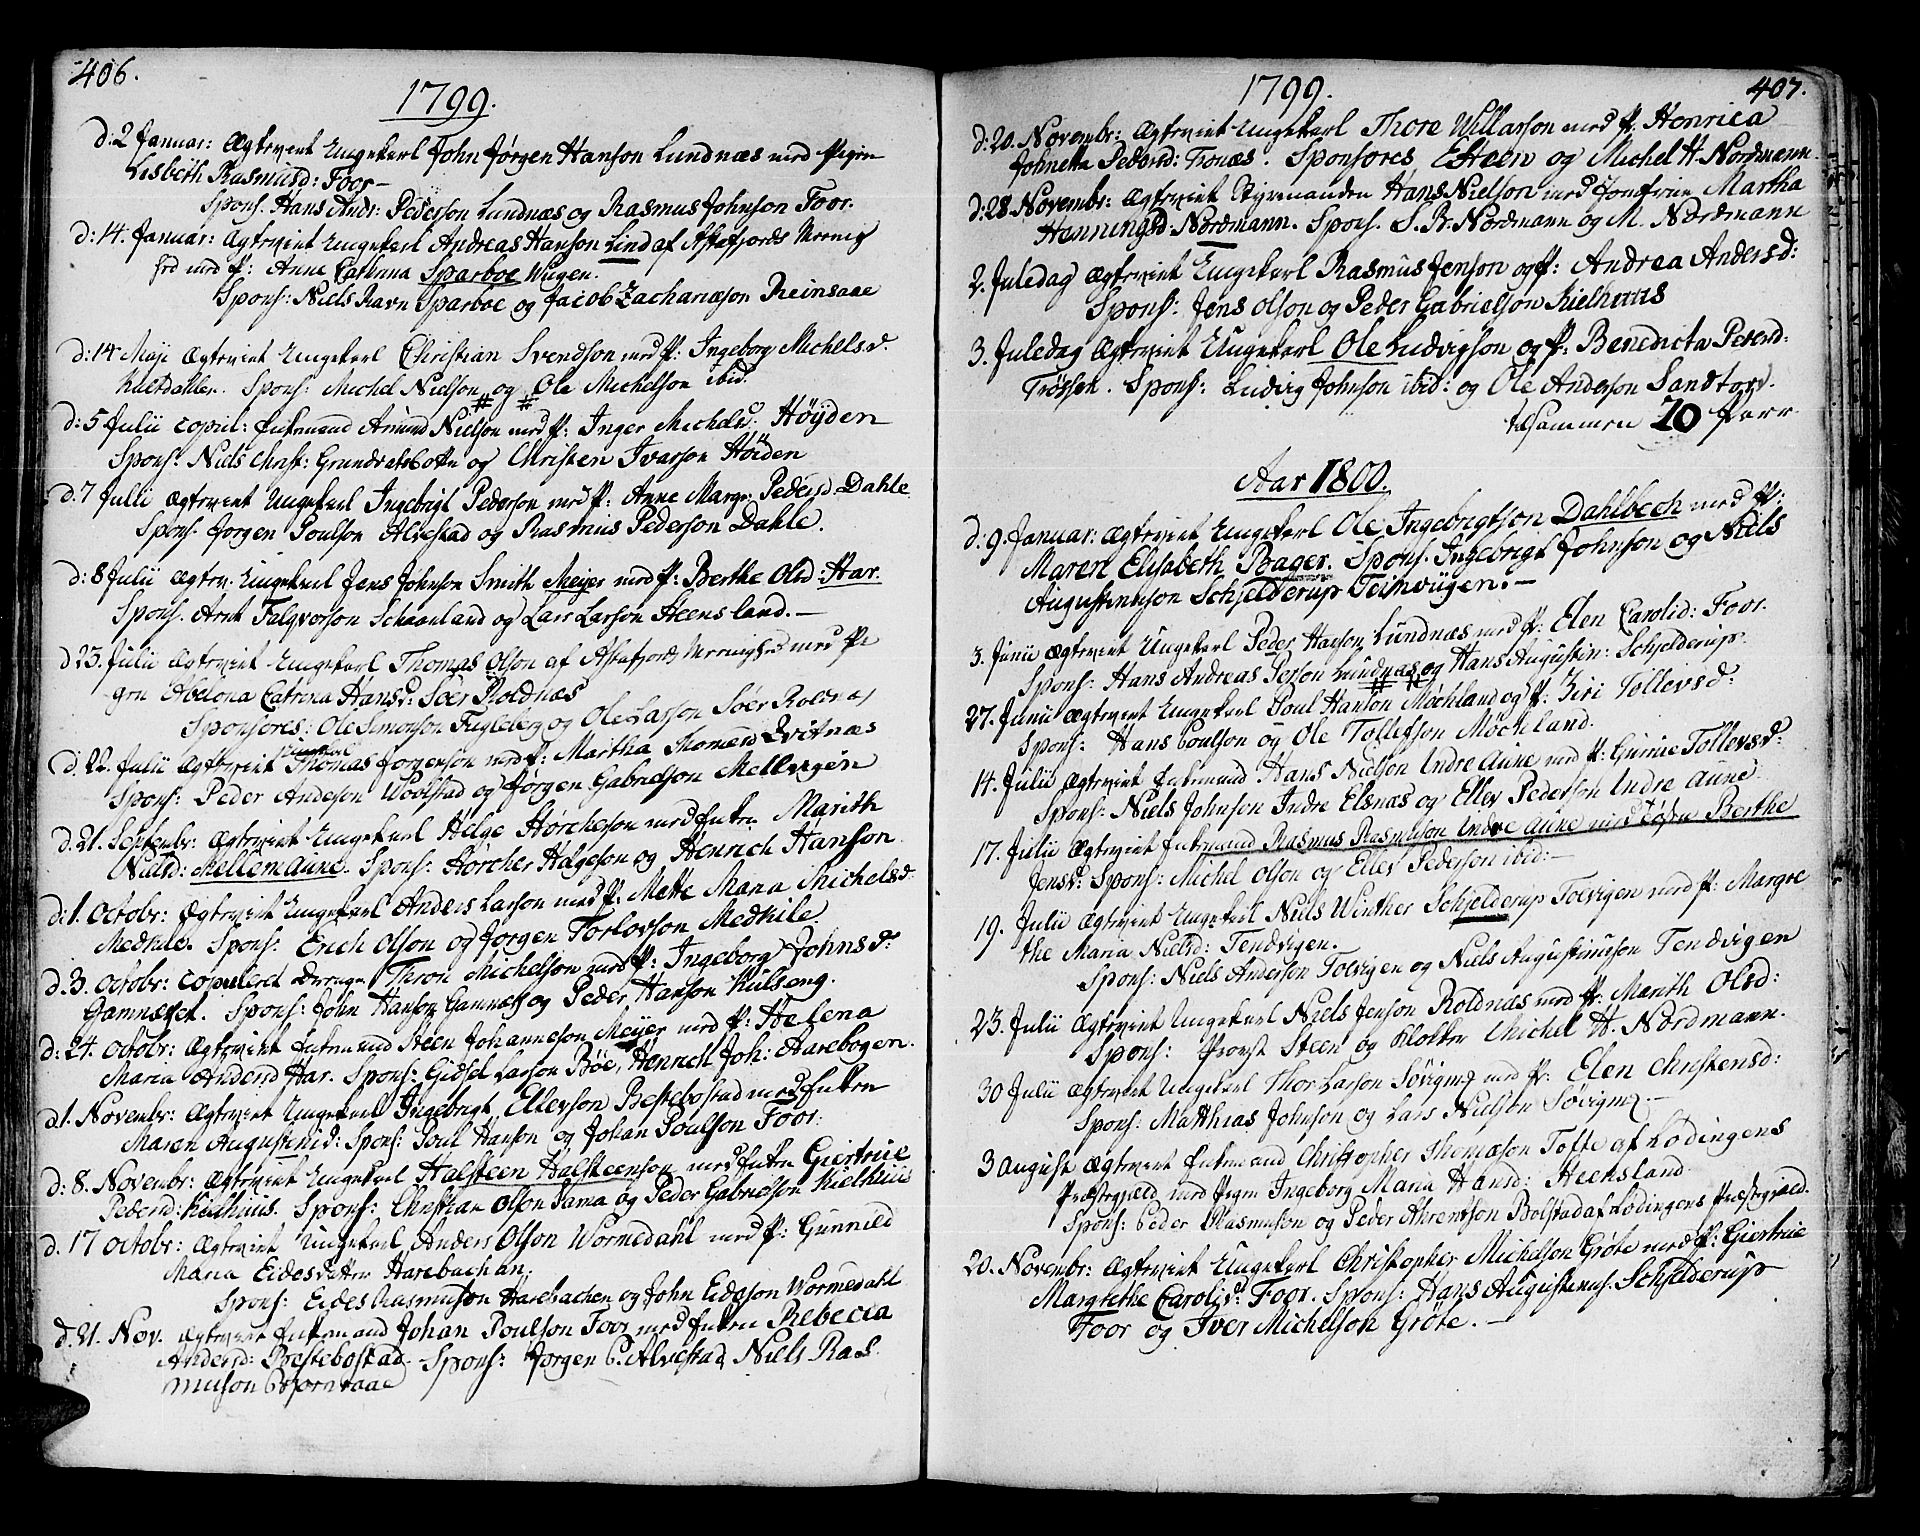 406.
1799.
d: 2 Januar: Ægteviet Ungekarl John Jørgen Hanson Lundnæs med Pigen
Lisbeth Rasmusd: Foor
Spons. Hans Andr: Pederson Lundnæs og Rasmus Johnson Foor.
d: 14. Januar: Ægteviet Ungekarl Andreas Hanson Lind af Astafjords
med P: Anne Catrina Sparboe Wugen.
Spons: Niels Ravn Sparboe og Jacob Zachariæson Reinsaae
d: 14 Maji Ægteviet Ungekarl Christian Svendson med P: Ingeborg Michelsd.
Kaldahlen. Spons: Michel Nielson og Ole Michelson ibid:
d: 5 Julii copul: Enkemand Amund Nielson med P: Inger Michelsd: Høyden
Spons: Niels Christ: og Christen Ivarson Høiden
d. 7 Julii Ægteviet Ungekarl Ingebrigt Pederson med P: Anne Margr: Pedersd. Dahle
Spons. Jorgen Poulson Alvestad og Rasmus Pederson Dahle.
d: 8 Julii Ægtev: Ungekarl Jens Johnson Smith Meijer med P: Berthe Olsd: Har.
Spons. Arnt Falqvorson Schaanland og Lars Larson Steensland.
d 23. Julii Ægteviet Ungekarl Thomas Olson af Astafjords med Pi
gen Abelona Catrina Hansd: Søer Roldnæs
Sponsores: Ole Simonson Fugleberg og Ole Lasson Søer Roldnæs
d. 22. Julii Ægteviet Ungekarl Thomas Jorgenson med P: Martha Thomæsd Qvitnæs
Spons: Peder Anderson Wovlstad og Jørgen Gabrielson Mellvigen
d: 21. Septembr: Ægteviet Ungekarl Helge Størcherson med Enken Marith
Nielsd: Mellem Aune. Spons: Størcher Helgeson og Henrich Hanson
d: 1. Octobr: Ægteviet Ungekarl Anders Larson med P. Mette Maria Michelsd
Medkile. Spons: Erich Olson og Jorgen Torlovson Medkile.
d. 3. Octobr: copuleret Drengen Thron Michelson med P: Ingeborg Johnsd:
Gamnesset. Spons: John Hanson Gamnæs og Peder Hanson Kulseng.
d: 24. Octobr: Ægteviet Enkemand Steen Johanneson Meijer med P: Helena
Maria Andersd Har. Spons: Gidsel Larson Böe, Henrich Joh: Aarebogen.
d 1. Novembr: Ægteviet Ungekarl Ingebrigt Ellevson Bestebostad med Enken
Maren Augustinid: Spons: Poul Hanson og Johan Poulson Foor.
d: 8. Novembr: Ægteviet Ungekarl Halsteen Halsteenson med Enken Giertrue
Pedersd: Kielhuus. Spons: Christian Olson Sama og Peder Gabrielson Kielhuus
d. 17 Octobr: Ægteviet Ungekarl Anders Olson Wormedahl med P: Gunnild
Maria Eidesdatter Harebachan.
Spons: Eides Rasmuson Harebachen og John Eidæson Wormedahl
d. 21. Nov. Ægteviet Enkemand Johan Poulson Foor med Enken Rebecca
Andersd: Bestebostad. Spons: Jørgen P. Alvestad, Niels Ras
muson Bjornraae
1799.
407.
d: 20. Novembr: Ægteviet Ungekarl Thore Willarson med P: Henrica
Johnetta Pedersd: Tronæs. Sponsores E. Steen og Michel H. Nordmann.
d. 28 Novembr: Ægteviet Styrmanden Hans Nielson med Jomfrue Martha
Henningsd: Nordmann. Spons. S. Br. Nordmann og M. Nordmann
2. Juledag Ægteviet Ungekarl Rasmus Jenson og P: Andrea Andersd:
Spons: Jens Olson og Peder Gabrielson Kielhuus
3. Juledag Ægteviet Ungekarl Ole Ludvigson og P: Benedicta Petersd:
Trøssen. Spons: Ludvig Johnson ibid: og Ole Anderson Sandtorv.
tilsammen 20 Parr.
Aar 1800.
d. 9. Januar: Ægteviet Ungekarl Ole Ingebrigtson Dahlbech med P:
Maren Elisabeth Bager. Spons. Ingebrigt Johnson og Niels
Augustinuson Schjelderup Teinvigen.
3. Junii Ægteviet Ungekarl Peder Hanson Lundnæs med P: Elen Carolid: Foor.
Spons: Hans Andreas Person Lundnæs og Hans Augustin: Schjelderup.
27. Junii Ægteviet Ungekarl Poul Hanson Møchland og P: Siri Tollevsd:
Spons: Hans Poulson og Ole Tollefson Möchland.
14. Julii Ægteviet Enkemand Hans Nielson Indre Aune med P: Gunnie Tollevsd:
Spons: Niels Johnson Indre Elsnæs og Ellev Pederson Indre Aune
17. Julii Ægteviet Enkemand Rasmus Rasmuson Indre Aune med Berthe
Jensd: Spons: Michel Olson og Ellev Pederson ibid:
19. Julii Ægteviet Ungekarl Niels Winther Schjelderup Tolvigen med P: Margre
the Maria Nielsd: Tendvigen.
Spons: Niels Anderson Tolvigen og Niels Augustinuson Tendvigen
23. Julii Ægteviet Ungekarl Niels Jenson Roldnæs med P: Marith Olsd:
Spons: Provst Steen og Klokker Michel H. Nordmann.
30 Julii Ægteviet Ungekarl Thor Larson Søvigen med P: Elen Christensd:
Spons: Matthias Johnson og Lars Nielson Søvigen
3 August Ægteviet Enkemand Christopher Thomæson Tofte af Lødingens
Præstegjæld med Pigen Ingeborg Maria Hansd: Heensland
Spons: Peder Rasmuson og Peder Ahrentson Bolstad af Lødingens Præstegjæld.
20. Novembr: Ægteviet Ungekarl Christopher Michelson Gröte med P: Giertrue
Margrethe Carolisd: Foor. Spons: Hans Augustinus. Schjelderup
Foor og Iver Michelson Gröte.